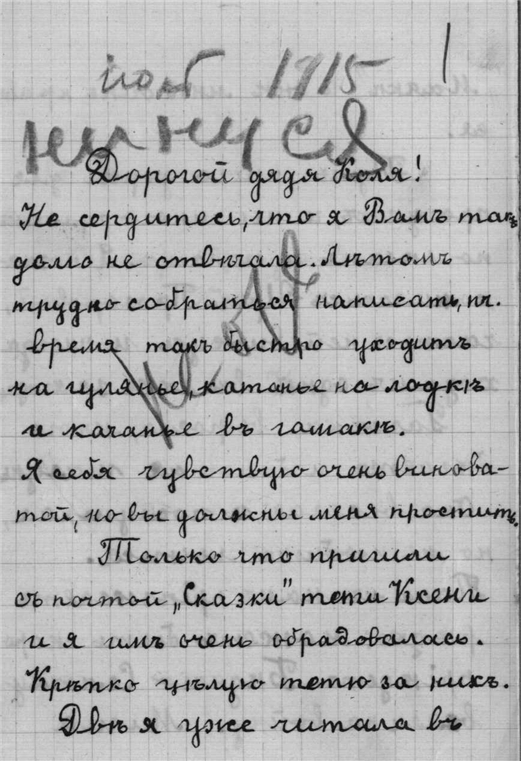 1915
Нинуся
Дорогой дядя Коля!
Не сердитесь, что я Вамъ такъ
долго не отвѣчала. Лѣтомъ
трудно собраться написать, пч.
время такъ быстро уходитъ
на гулянье, катанье на лодкѣ
и качанье въ гамакѣ.
Я себя чувствую очень винова-
той, но вы должны меня простить.
Только что пришли
съ почтой „Сказки" тети Ксени
и я имъ очень обрадовалась.
Крѣпко цѣлую тетю за нихъ.
Двѣ я уже читала въ